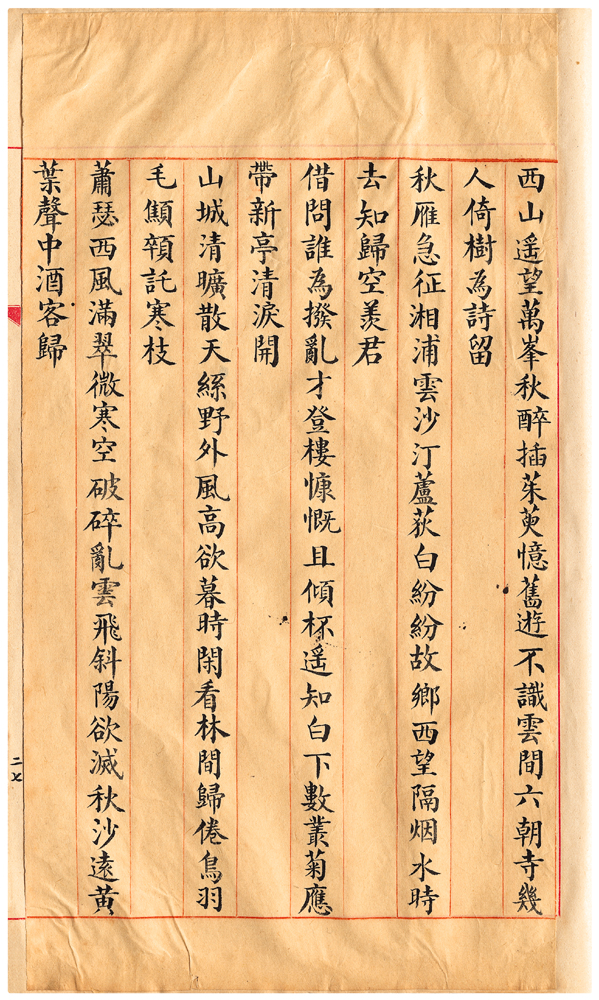 西山遥望萬峯秋醉插茱萸憶舊遊不識雲間六朝寺幾
人倚樹為詩留
秋雁急征湘浦雲沙汀蘆荻白紛紛故鄉西望隔烟水時
去知歸空羨君
借問誰為撥亂才登樓慷慨且傾杯遥知白下數叢菊應
帶新亭清淚開
山城清曠散天絲野外風高欲暮時閑看林間歸倦鳥羽
毛顦顇託寒枝
蕭瑟西風滿翠微寒空破碎亂雲飛斜陽欲滅秋沙遠黄
葉聲中酒客歸
二七